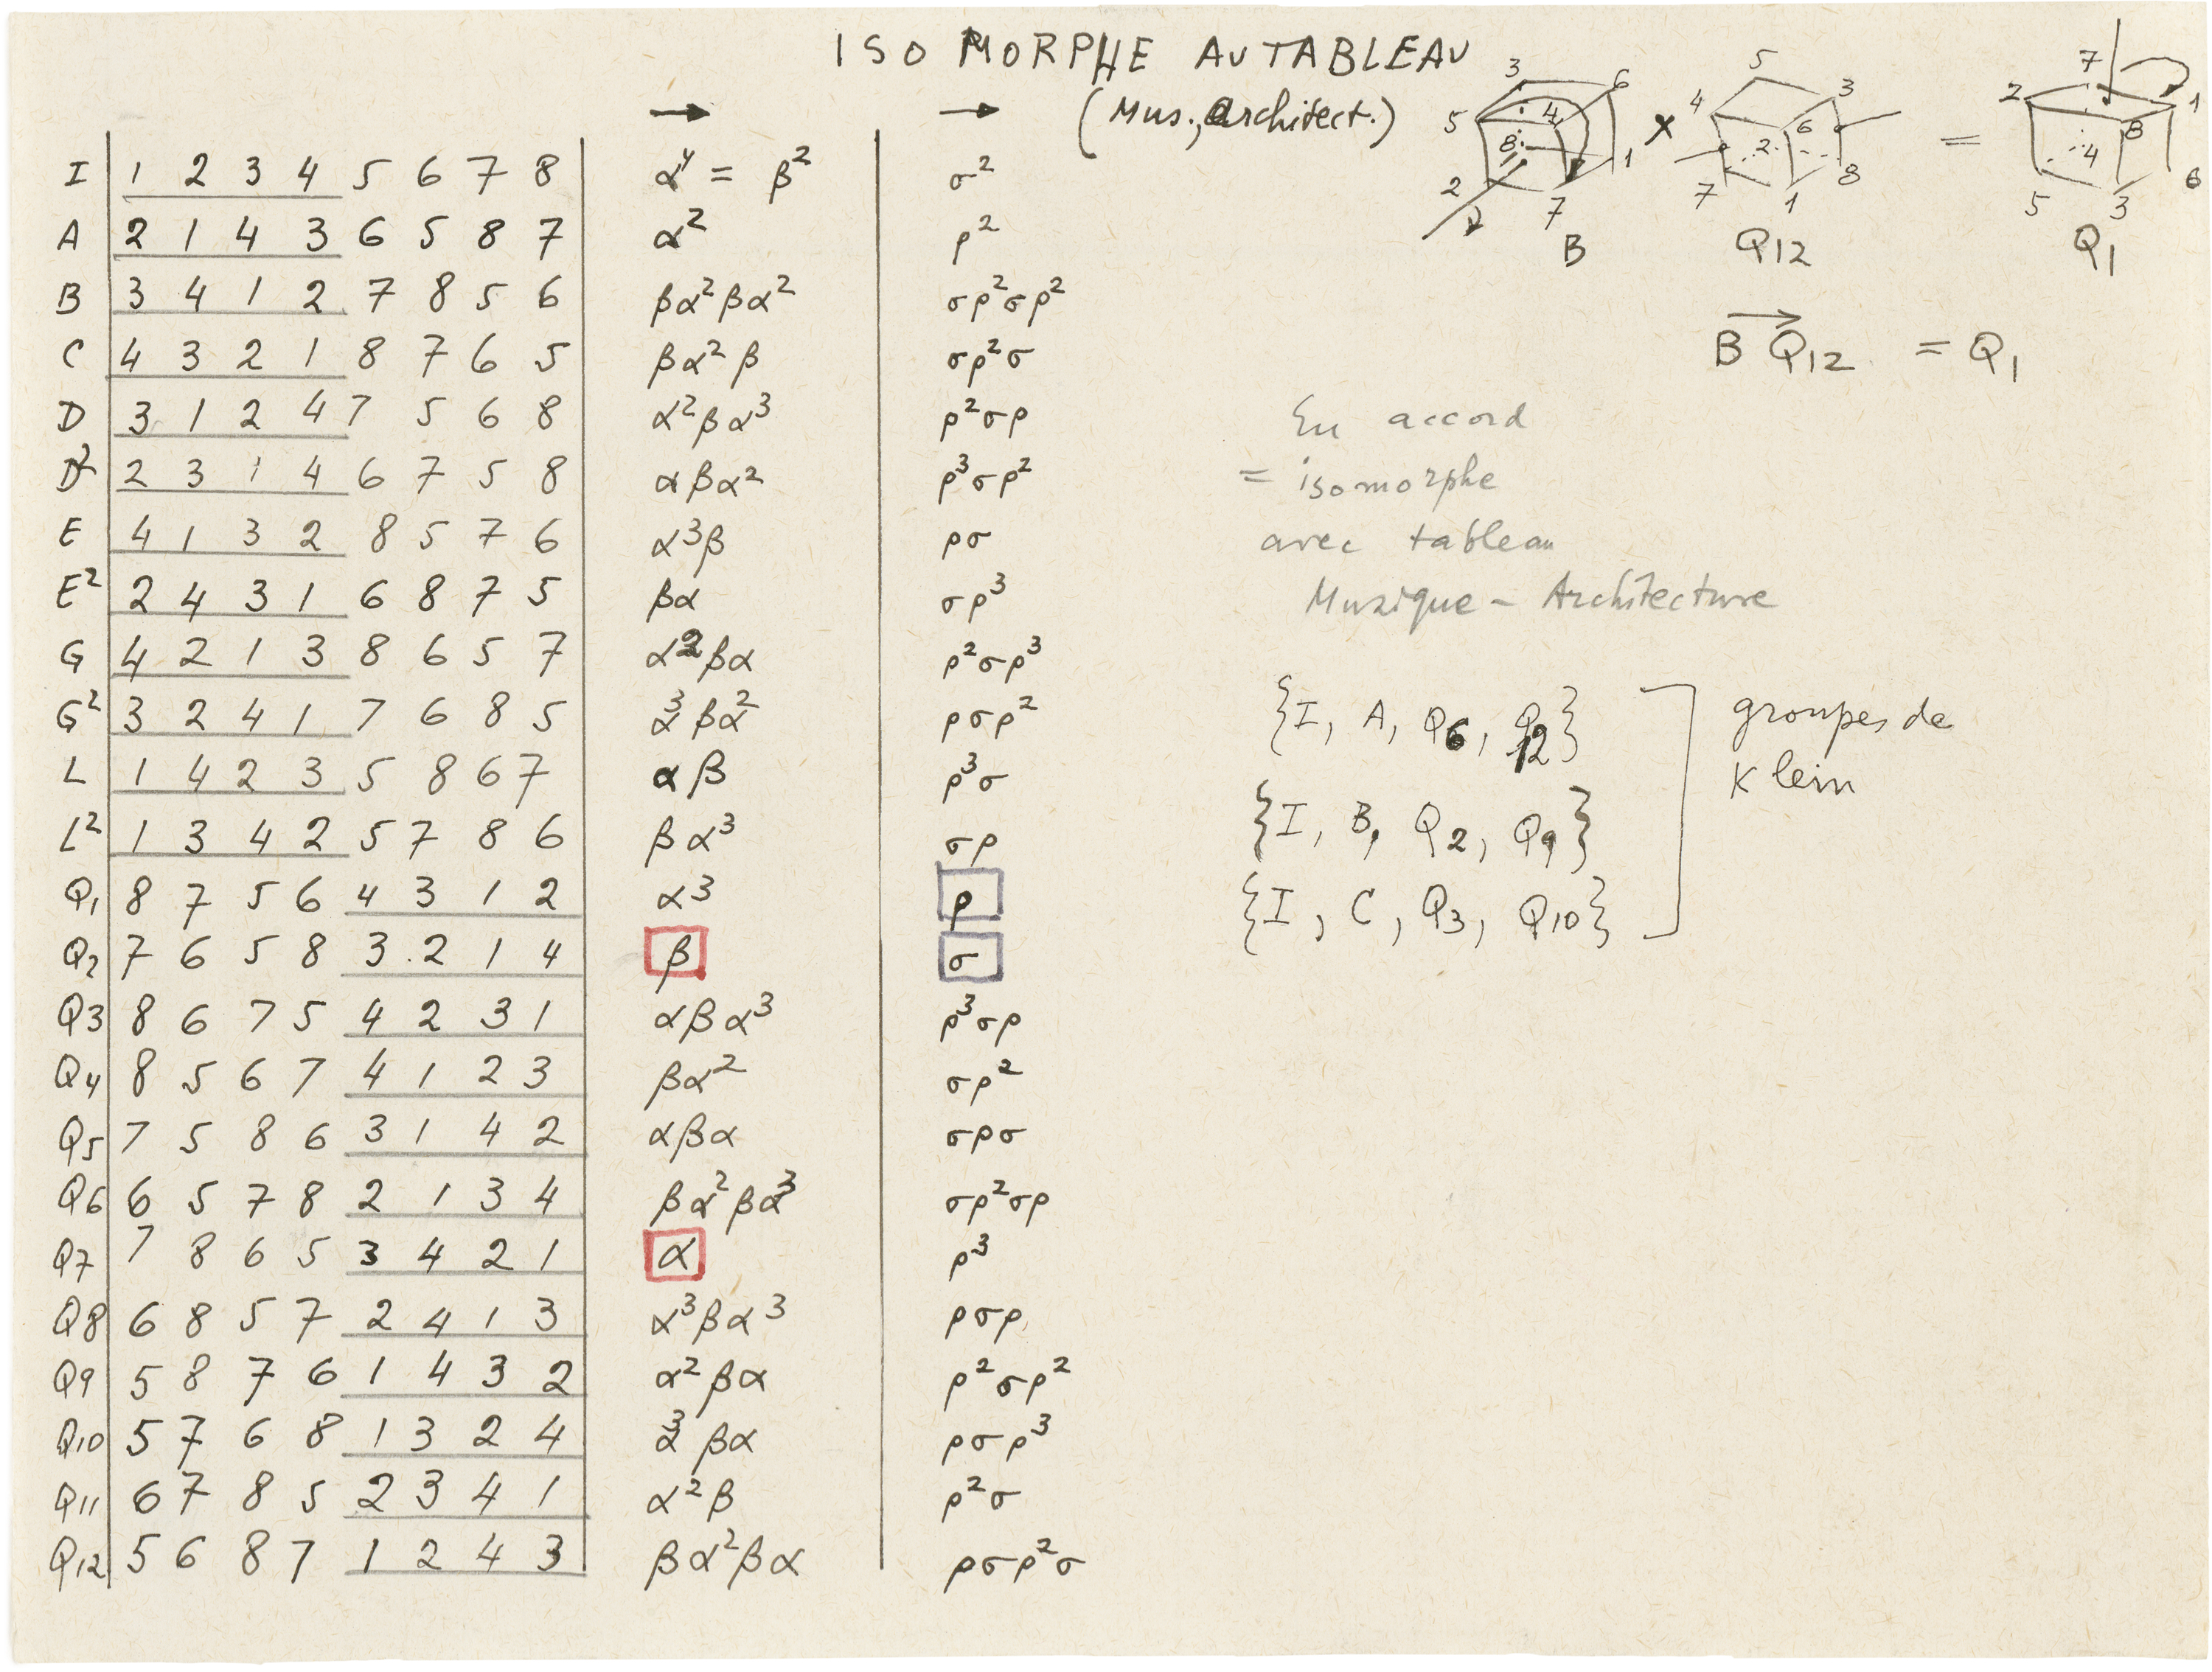 ISOMORPHE AU TABLEAU
(Mus., Architect.)
→ →
I 1 2 3 4 5 6 7 8 α⁴ = β² σ²
A 2 1 4 3 6 5 8 7 α² ρ²
B 3 4 1 2 7 8 5 6 βα²βα² σρ²σρ²
C 4 3 2 1 8 7 6 5 βα²β σρ²σ
D 3 1 2 4 7 5 6 8 α²βα³ ρ²σρ
D² 2 3 1 4 6 7 5 8 αβα² ρ³σρ²
E 4 1 3 2 8 5 7 6 α³β ρσ
E² 2 4 3 1 6 8 7 5 βα σρ³
G 4 2 1 3 8 6 5 7 α²βα ρ²σρ³
G² 3 2 4 1 7 6 8 5 α³βα² ρσρ²
L 1 4 2 3 5 8 6 7 αβ ρ³σ
L² 1 3 4 2 5 7 8 6 βα³ σρ
Q1 8 7 5 6 4 3 1 2 α³ ρ
Q2 7 6 5 8 3 2 1 4 β σ
Q3 8 6 7 5 4 2 3 1 αβα³ ρ³σρ
Q4 8 5 6 7 4 1 2 3 βα² σρ²
Q5 7 5 8 6 3 1 4 2 αβα σρσ
Q6 6 5 7 8 2 1 3 4 βα²βα³ σρ²σρ
Q7 7 8 6 5 3 4 2 1 α ρ³
Q8 6 8 5 7 2 4 1 3 α³βα³ ρσρ
Q9 5 8 7 6 1 4 3 2 α²βα ρ²σρ²
Q10 5 7 6 8 1 3 2 4 α³βα ρσρ³
Q11 6 7 8 5 2 3 4 1 α²β ρ²σ
Q12 5 6 8 7 1 2 4 3 βα²βα ρσρ²σ
3 6 5 4 8 1 2 7
B
×
5 4 3 6 2 7 1 8
Q12
=
7 2 1 8 4 5 3 6
Q1
B Q12 = Q1
En accord
= isomorphe
avec tableau
Muzique - Architecture
{I, A, Q6, Q12}
{I, B, Q2, Q9}
{I, C, Q3, Q10}
groupes de
Klein